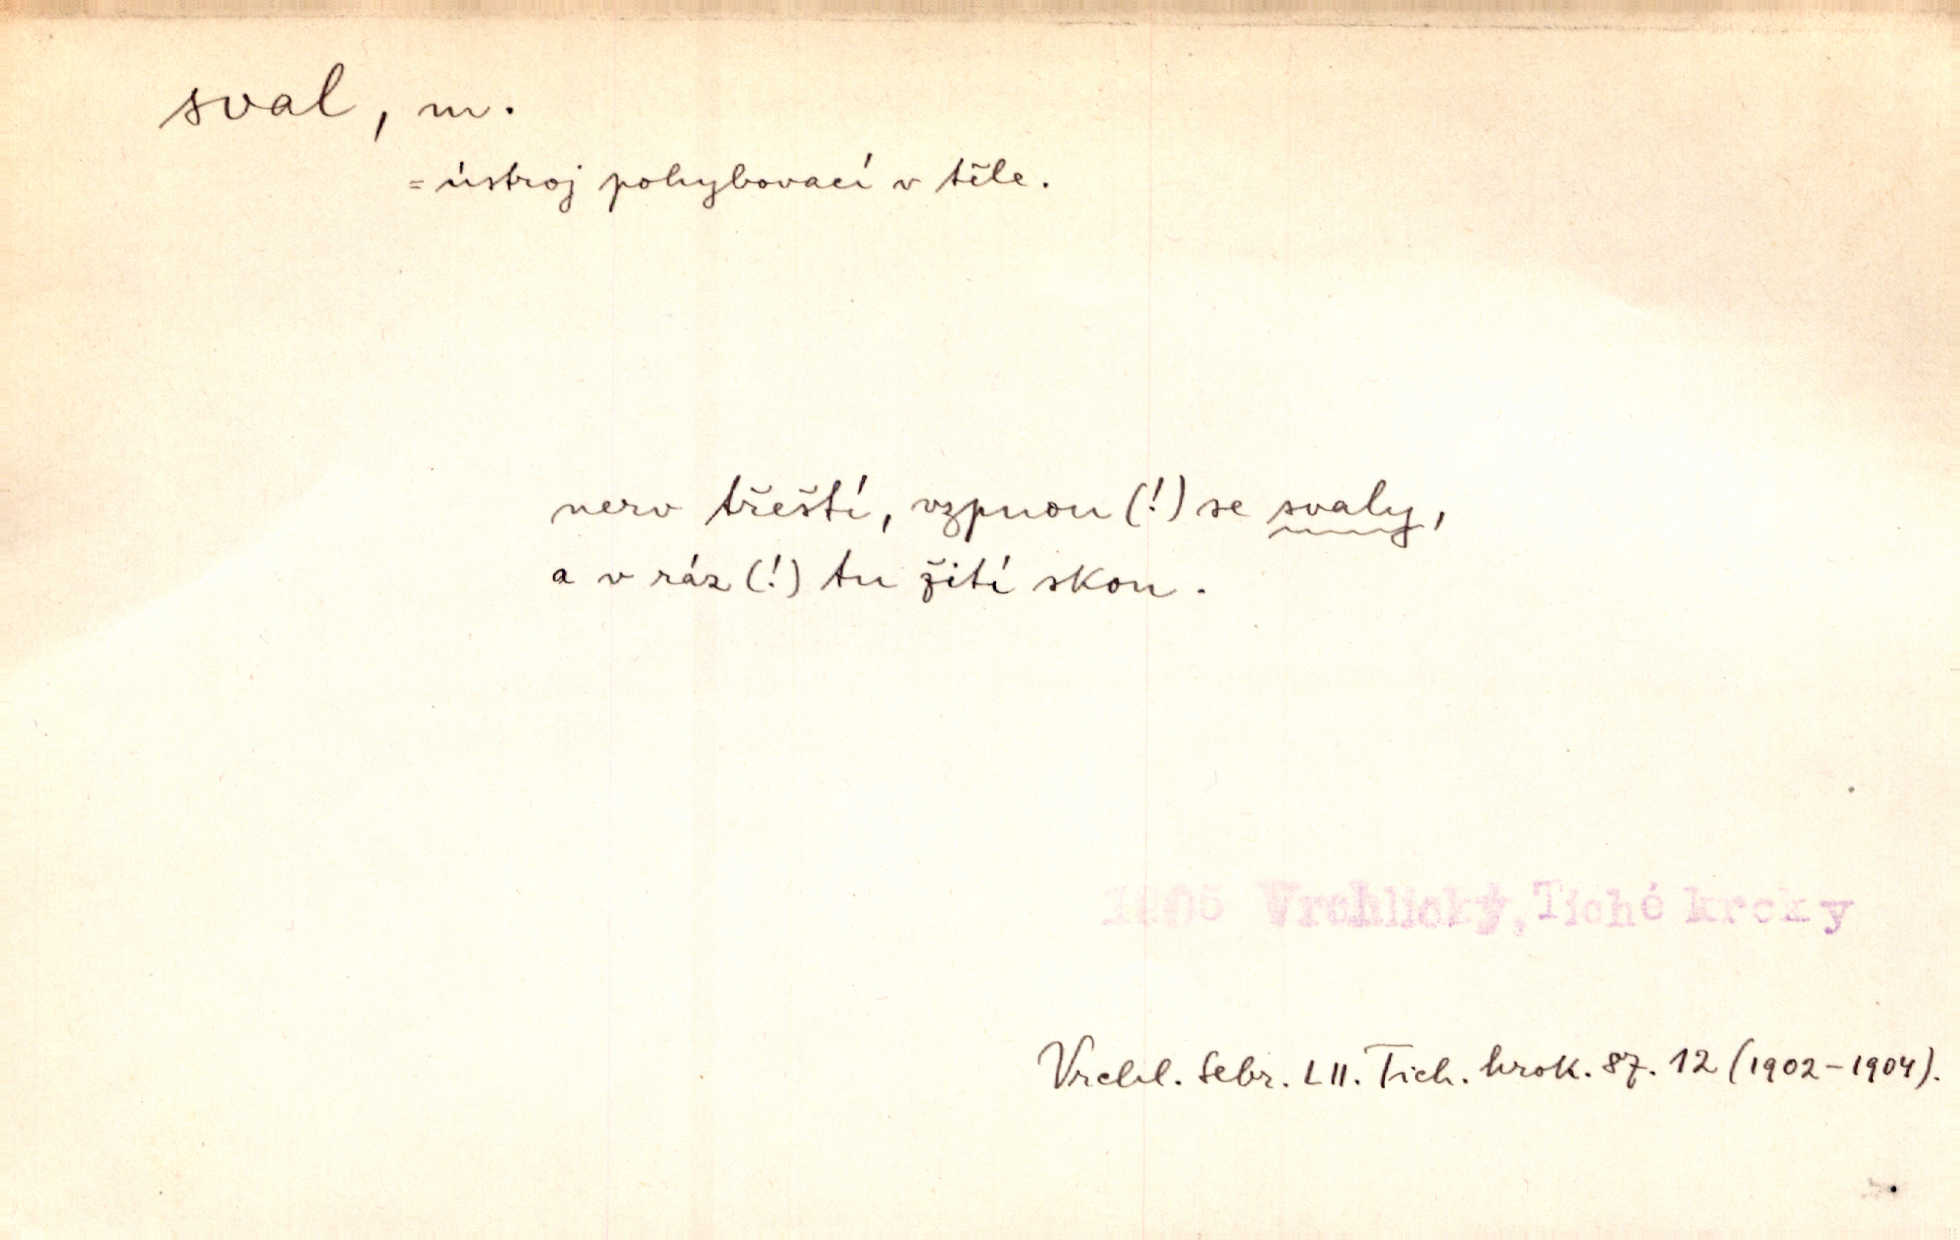 sval, m.
= ústroj pohybovací v těle.
nerv třeští, vzpnou (!) se svaly,
a v ráz (!) tu žití skon.
1905 Vrchlický, Tiché kroky
Vrchl. Sebr. LII. Tich. krok. 87. 12 (1902-1904).